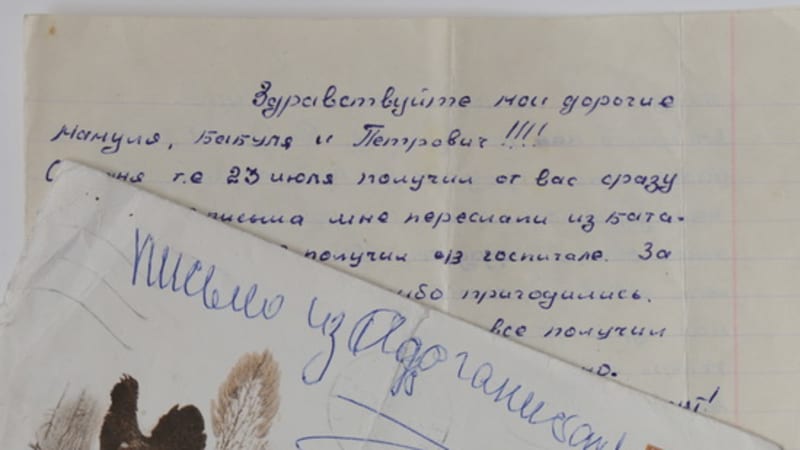 Здравствуйте мои дорогие
мамуля, бабуля и Петрович!!!!
т.е 23 июля получил от вас сразу
письма мне переслали из бата-
получил в госпитале. За
пригодились.
все получил
письмо из Афганистан